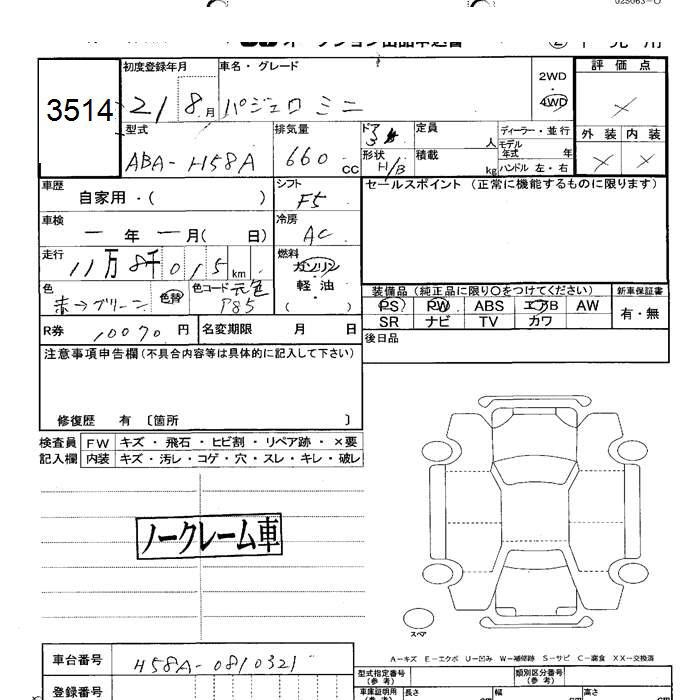 オークション出品申込書
初度登録年月 車名・グレード 2WD 評価点
3514 21 8月 パジェロ ミニ 4WD ×
型式 排気量 ドア 定員 ディーラー・並行 外装 内装
ABA-H58A 660cc 3 人 モデル年式 年 × ×
形状 H/B 積載 kg ハンドル 左・右
車歴 自家用・( ) シフト F5 セールスポイント (正常に機能するものに限ります)
車検 ー年 ー月( 日) 冷房 AC
走行 11万8千015km 燃料 ガソリン
軽・油
( )
色 赤→グリーン 色替 色コード 元色 P85 装備品 (純正品に限り○をつけてください) 新車保証書
PS PW ABS エアB AW 有・無
SR ナビ TV カワ
R券 10070円 名変期限 月 日 後日品
注意事項申告欄(不具合内容等は具体的に記入して下さい)
修復歴 有 〔箇所 〕
検査員 FW キズ・飛石・ヒビ割・リペア跡・×要
記入欄 内装 キズ・汚レ・コゲ・穴・スレ・キレ・破レ
ノークレーム車
スペア
A―キズ E―エクボ U―凹み W―補修跡 S―サビ C―腐食 XX―交換済
車台番号 H58A-0810321 型式指定番号(参考) 類別区分番号(参考)
登録番号 車庫証明用(参考) 長さ cm 幅 cm 高さ cm